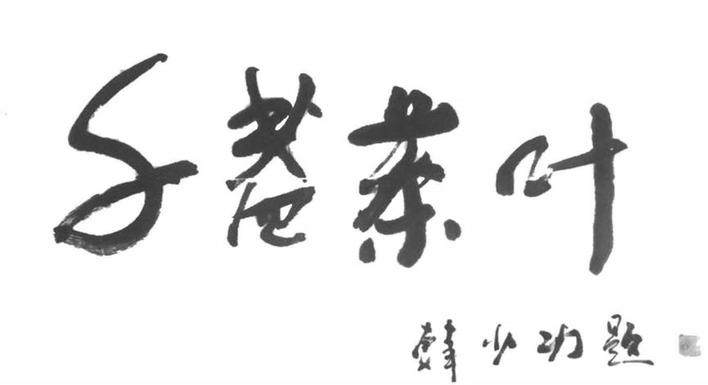 千盏茶叶
韩少功题